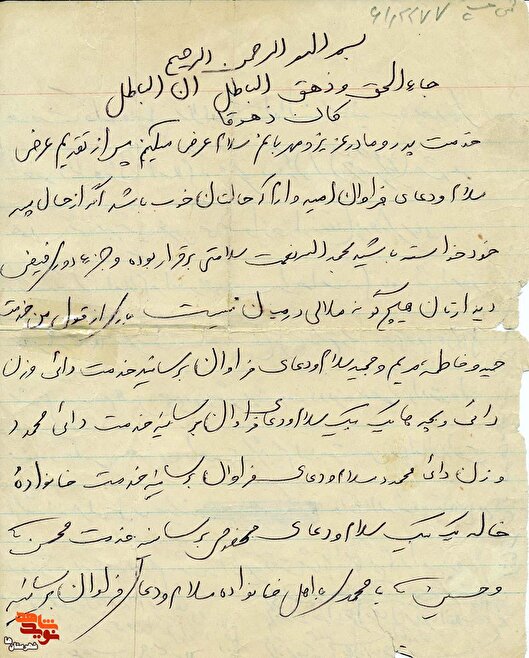 بسم الله الرحمن الرحیم
جاء الحق و ذهق الباطل ان الباطل
کان ذهوقا
خدمت پدر و مادر عزیز و مهربانم سلام عرض میکنم پس از تقدیم عرض
سلام و دعای فراوان امیدوارم که حالتان خوب باشد اگر از حال پسر
خود خواسته باشید بحمد الله نعمت سلامتی برقرار بوده و جزء دوری فیض
دیدارتان هیچ گونه ملالی در میان نیست باری از قول من خدمت
حمید و فاطمه مریم و مجید سلام و دعای فراوان برسانید خدمت دائی و زن
دائی و بچه ها یک یک سلام و دعای فراوان برسانید خدمت دائی محمد
و زن دائی محمد سلام و دعای فراوان برسانید خدمت خانواده
خاله یک یک سلام و دعای مخصوص برسانید خدمت محسن
و حسین محمدی با اهل خانواده سلام و دعای فراوان برسانید
نوید شاهد
شهرستان‌ها